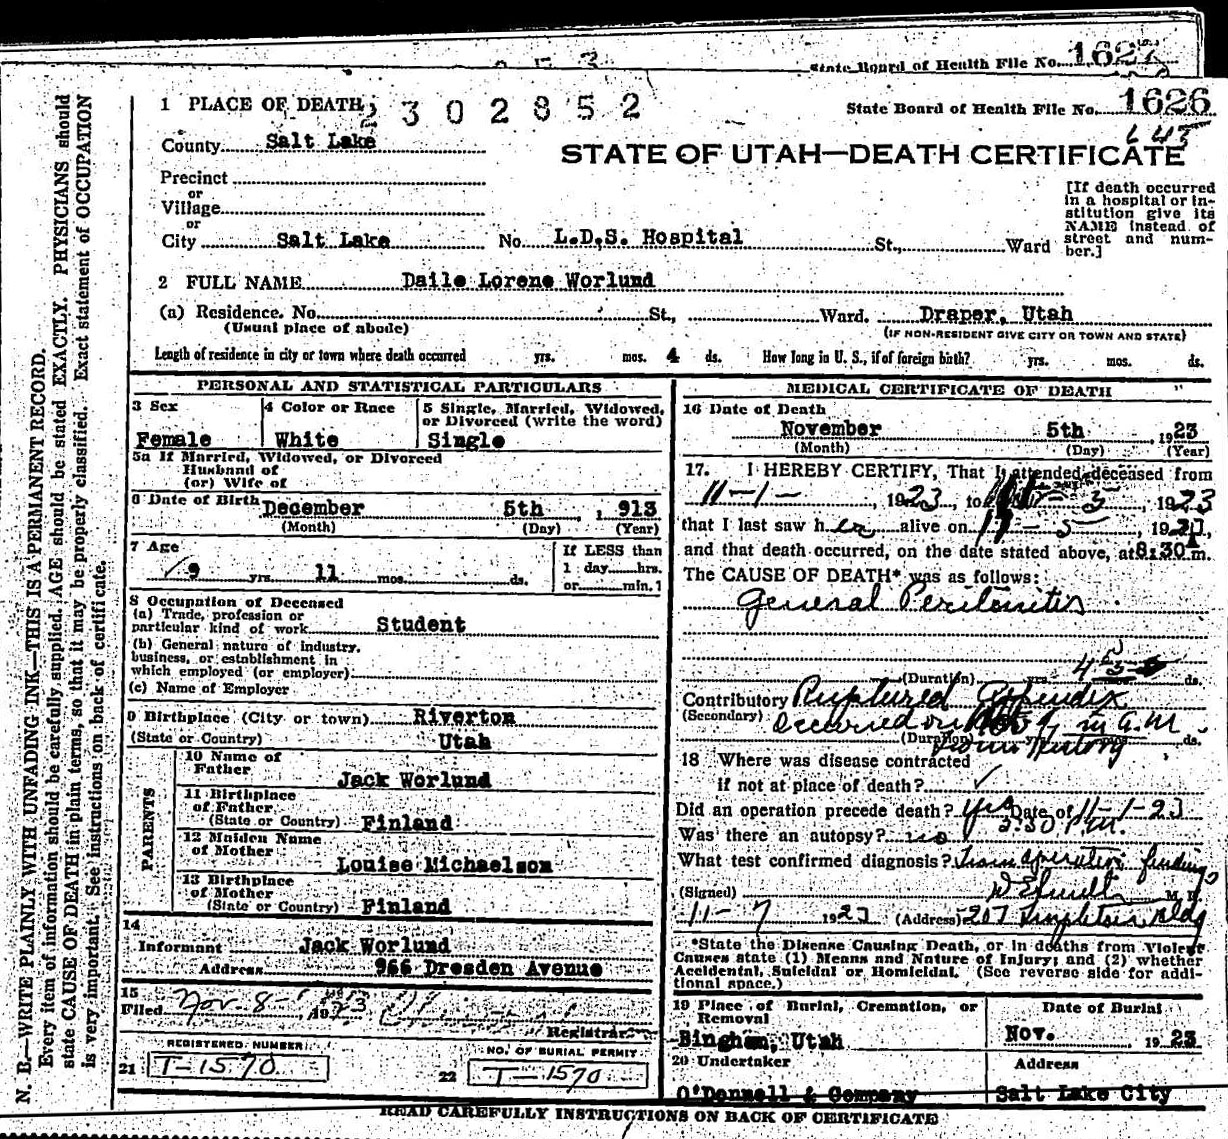 State Board of Health File No. 1627
1 PLACE OF DEATH 2302852
State Board of Health File No. 1626
645
County Salt Lake
STATE OF UTAH—DEATH CERTIFICATE
Precinct
or
Village
or
City Salt Lake No. L.D.S. Hospital St., Ward
[If death occurred in a hospital or institution give its NAME instead of street and number.]
2 FULL NAME Daile Lorene Worlund
(a) Residence. No. St., Ward. Draper, Utah
(Usual place of abode) (IF NON-RESIDENT GIVE CITY OR TOWN AND STATE)
Length of residence in city or town where death occurred yrs. mos. 4 ds. How long in U. S., if of foreign birth? yrs. mos. ds.
PERSONAL AND STATISTICAL PARTICULARS
3 Sex
Female
4 Color or Race
White
5 Single, Married, Widowed, or Divorced (write the word)
Single
5a If Married, Widowed, or Divorced
Husband of
(or) Wife of
6 Date of Birth December 5th, 1913
(Month) (Day) (Year)
7 Age
9 yrs. 11 mos. ds.
If LESS than
1 day hrs.
or min.]
8 Occupation of Deceased
(a) Trade, profession or
particular kind of work Student
(b) General nature of industry,
business, or establishment in
which employed (or employer)
(c) Name of Employer
9 Birthplace (City or town) Riverton
(State or Country) Utah
PARENTS
10 Name of
Father Jack Worlund
11 Birthplace
of Father
(State or Country) Finland
12 Maiden Name
of Mother
Louise Michaelson
13 Birthplace
of Mother
(State or Country) Finland
14
Informant Jack Worlund
Address 966 Dresden Avenue
15
Filed Nov. 8- 1923
Registrar
REGISTERED NUMBER
21 T-1570
NO. OF BURIAL PERMIT
22 T-1570
MEDICAL CERTIFICATE OF DEATH
16 Date of Death
November 5th, 1923
(Month) (Day) (Year)
17. I HEREBY CERTIFY, That I attended deceased from
11-1-, 1923, to 5, 1923
that I last saw her alive on 11-5, 1923,
and that death occurred, on the date stated above, at 8:30 A m.
The CAUSE OF DEATH* was as follows:
General Peritonitis
(Duration) yrs. ds.
Contributory Ruptured Appendix
(Secondary) occurred on A.M.
(Duration) yrs. ds.
from History
18 Where was disease contracted
if not at place of death?
Did an operation precede death? Yes Date of 11-1-23
2:30 P.M.
Was there an autopsy? no
What test confirmed diagnosis? From operation findings
(Signed) M. D.
11-7 1923 (Address) 207 Templeton Bldg
*State the Disease Causing Death, or in deaths from Violent
Causes state (1) Means and Nature of Injury; and (2) whether
Accidental, Suicidal or Homicidal. (See reverse side for addi-
tional space.)
19 Place of Burial, Cremation, or
Removal
Bingham, Utah
Date of Burial
Nov. 1923
20 Undertaker
O'Donnell & Company
Address
Salt Lake City
READ CAREFULLY INSTRUCTIONS ON BACK OF CERTIFICATE
N. B.—WRITE PLAINLY WITH UNFADING INK—THIS IS A PERMANENT RECORD.
Every item of information should be carefully supplied. AGE should be stated EXACTLY. PHYSICIANS should
state CAUSE OF DEATH in plain terms, so that it may be properly classified. Exact statement of OCCUPATION
is very important. See instructions on back of certificate.